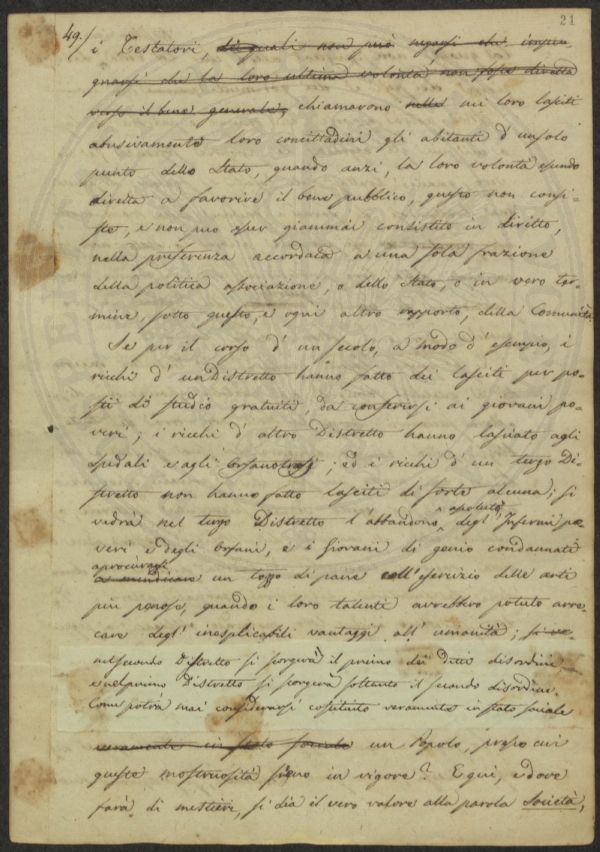 21
49./
i Testatori, dei quali non può negarsi che
gnarsi che la loro ultima volontà non fosse diretta
verso il bene generale, chiamarono nelle nei loro lasciti
abusivamente loro concittadini gli abitanti d'un solo
punto dello Stato, quando anzi, la loro volontà essendo
diretta a favorire il bene pubblico, questo non consi-
ste, e non può esser giammai consistito in diritto,
nella preferenza accordata a una sola frazione
della politica associazione, o dello Stato, o in vero ter-
mine, sotto questo, e ogni altro rapporto, della Comunità.
Se per il corso d'un secolo, a modo d'esempio, i
ricchi d'un Distretto hanno fatto dei lasciti per po-
sti di studio gratuiti da conferirsi ai giovani po-
veri; i ricchi d'altro Distretto hanno lasciato agli
Spedali e agli Orfanotrofj; ed i ricchi d'un terzo Di-
stretto non hanno fatto lasciti di sorte alcuna; si
vedrà nel terzo Distretto l'abbandono assoluto degl'Infermi po-
veri e degli Orfani, e i Giovani di genio condannati
a procurarsi
a mendicare un tozzo di pane coll'esercizio delle arti
più penose, quando i loro talenti avrebbero potuto arre-
care degl'inesplicabili vantaggi all'umanità; si ve-
nel secondo Distretto si scorgerà il primo dei detti disordini
e nel primo Distretto si scorgerà soltanto il secondo disordine.
Come potrà mai considerarsi costituito veramente in stato sociale
veramente in stato sociale un Popolo, presso cui
queste mostruosità sieno in vigore? E qui, e dove
farà di mestieri, si dia il vero valore alla parola Società,